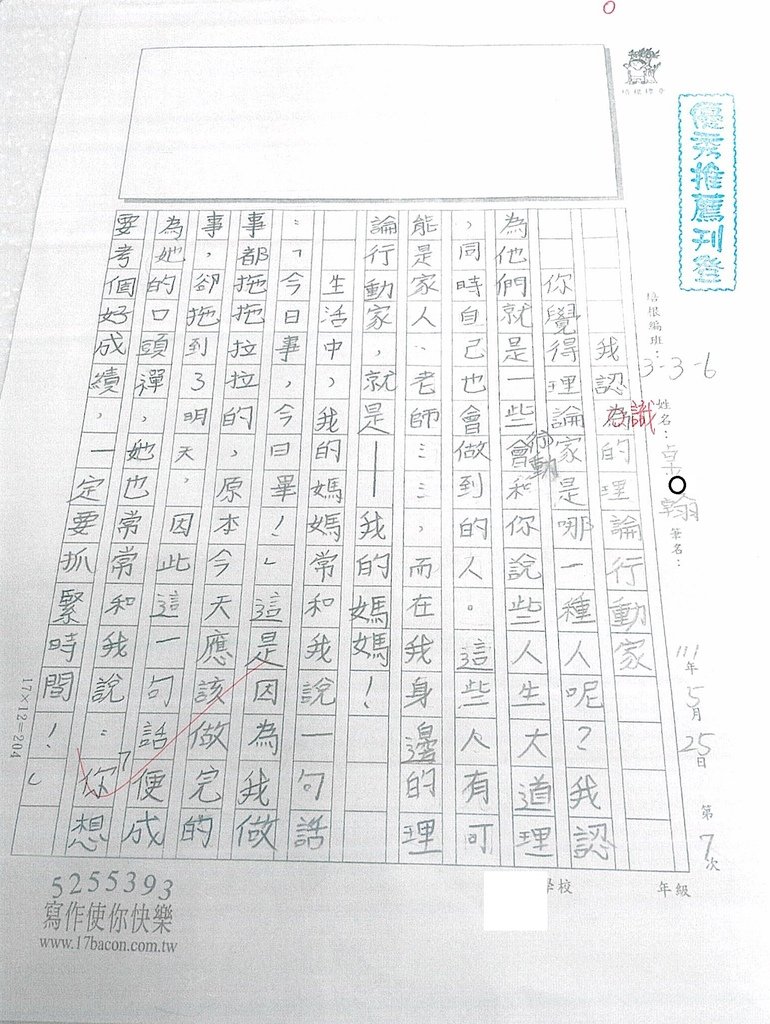 優秀推薦刊登
培根編班：3-3-6
姓名：卓○翰
筆名：
111年5月25日 第7次
學校 年級
我認識的理論行動家
你覺得理論家是哪一種人呢？我認
為他們就是一些會和你說些人生大道理
行動
，同時自己也會做到的人。這些人有可
能是家人、老師……，而在我身邊的理
論行動家，就是——我的媽媽！
生活中，我的媽媽常和我說一句話
：「今日事，今日畢！」這是因為我做
事都拖拖拉拉的，原本今天應該做完的
事，卻拖到了明天，因此這一句話便成
為她的口頭禪，她也常常和我說：「你想
要考個好成績，一定要抓緊時間！」
17×12=204
5255393
寫作使你快樂
www.17bacon.com.tw